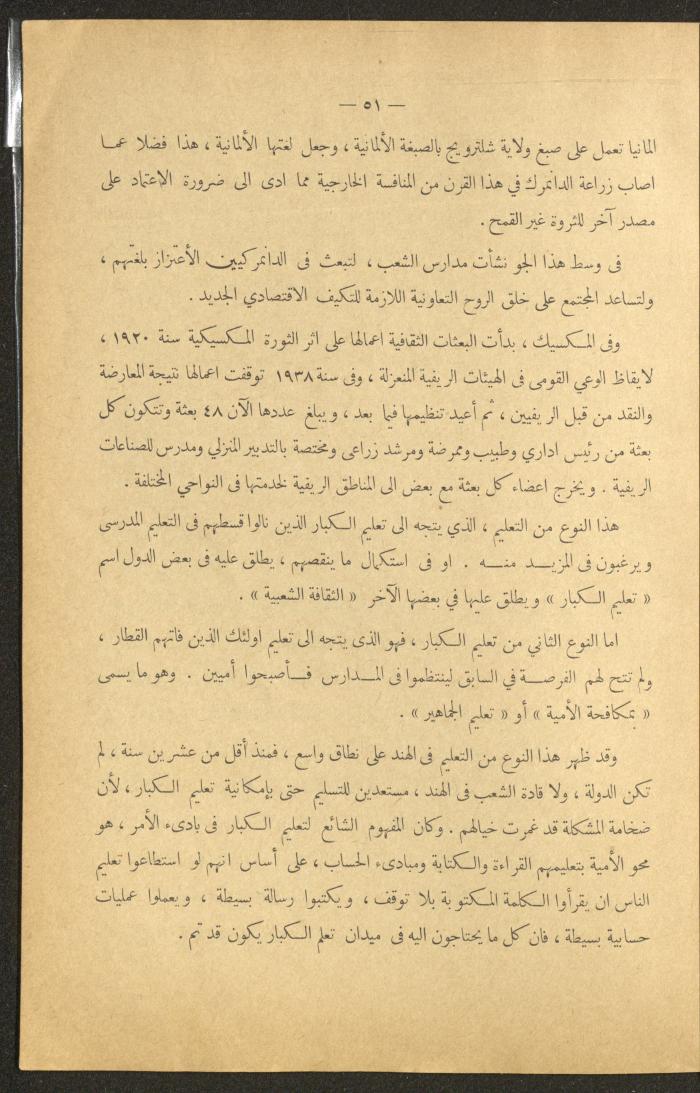 — ٥١ —
المانيا تعمل على صبغ ولاية شلترويج بالصبغة الألمانية ، وجعل لغتها الألمانية ، هذا فضلا عما
اصاب زراعة الدانمرك في هذا القرن من المنافسة الخارجية مما ادى الى ضرورة الإعتماد على
مصدر آخر للثروة غير القمح .
فى وسط هذا الجو نشأت مدارس الشعب ، لتبعث فى الدانمركيين الأعتزاز بلغتهم ،
ولتساعد المجتمع على خلق الروح التعاونية اللازمة للتكيف الاقتصادي الجديد .
وفى المكسيك ، بدأت البعثات الثقافية اعمالها على اثر الثورة المكسيكية سنة ١٩٢٠ ،
لايقاظ الوعي القومى فى الهيئات الريفية المنعزلة ، وفى سنة ١٩٣٨ توقفت اعمالها نتيجة المعارضة
والنقد من قبل الريفيين ، ثم أعيد تنظيمها فيما بعد ، ويبلغ عددها الآن ٤٨ بعثة وتتكون كل
بعثة من رئيس اداري وطبيب وممرضة ومرشد زراعى ومختصة بالتدبير المنزلي ومدرس للصناعات
الريفية . ويخرج اعضاء كل بعثة مع بعض الى المناطق الريفية لخدمتها فى النواحي المختلفة .
هذا النوع من التعليم ، الذي يتجه الى تعليم الكبار الذين نالوا قسطهم فى التعليم المدرسى
ويرغبون فى المزيد منه . او فى استكمال ما ينقصهم ، يطلق عليه فى بعض الدول اسم
« تعليم الكبار » ويطلق عليها في بعضها الآخر « الثقافة الشعبية » .
اما النوع الثاني من تعليم الكبار ، فهو الذى يتجه الى تعليم اولئك الذين فاتهم القطار ،
ولم تتح لهم الفرصة في السابق لينتظموا فى المدارس فأصبحوا أميين . وهو ما يسمى
« بمكافحة الأمية » أو « تعليم الجماهير » .
وقد ظهر هذا النوع من التعليم فى الهند على نطاق واسع ، فمنذ أقل من عشرين سنة ، لم
تكن الدولة ، ولا قادة الشعب فى الهند ، مستعدين للتسليم حتى بإمكانية تعليم الكبار ، لأن
ضخامة المشكلة قد غمرت خيالهم . وكان المفهوم الشائع لتعليم الكبار فى بادىء الأمر ، هو
محو الأمية بتعليمهم القراءة والكتابة ومبادىء الحساب ، على أساس انهم لو استطاعوا تعليم
الناس ان يقرأوا الكلمة المكتوبة بلا توقف ، ويكتبوا رسالة بسيطة ، ويعملوا عمليات
حسابية بسيطة ، فان كل ما يحتاجون اليه فى ميدان تعلم الكبار يكون قد تم .